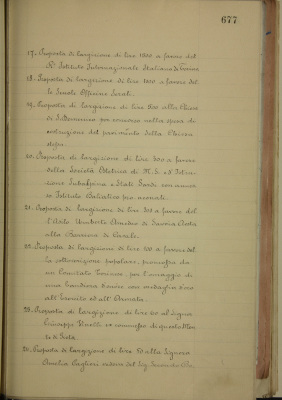 677
17. Proposta di largizione di lire 1000 a favore del
R. Istituto Internazionale Italiano di Torino
18. Proposta di largizione di lire a favore del
le Scuole Officine Serali
19. Proposta di largizione di lire 500 alla Chiesa
di per concorso nella spesa di
costruzione del pavimento della Chiesa
20. Proposta di largizione di lire 300 a favore
della Società di M. S. e d'Istru
zione Subalpina e Stati Sardi con annes
so Istituto Baliatico pei neonati.
21. Proposta di largizione di lire a favore del
l'Asilo Umberto Amedeo di Savoia Aosta
alla Barriera di Casale.
22. Proposta di largizione di lire 100 a favore del
la sottoscrizione popolare, promossa da
un Comitato Torinese, per l'omaggio di
una bandiera d'onore con medaglia d'oro
all'Esercito ed all'Armata.
23. Proposta di largizione di lire 60 al Signor
Giuseppe usciere di questo Mon
te di Pietà.
24. Proposta di largizione di lire 50 alla Signora
Amelia vedova del Sig.